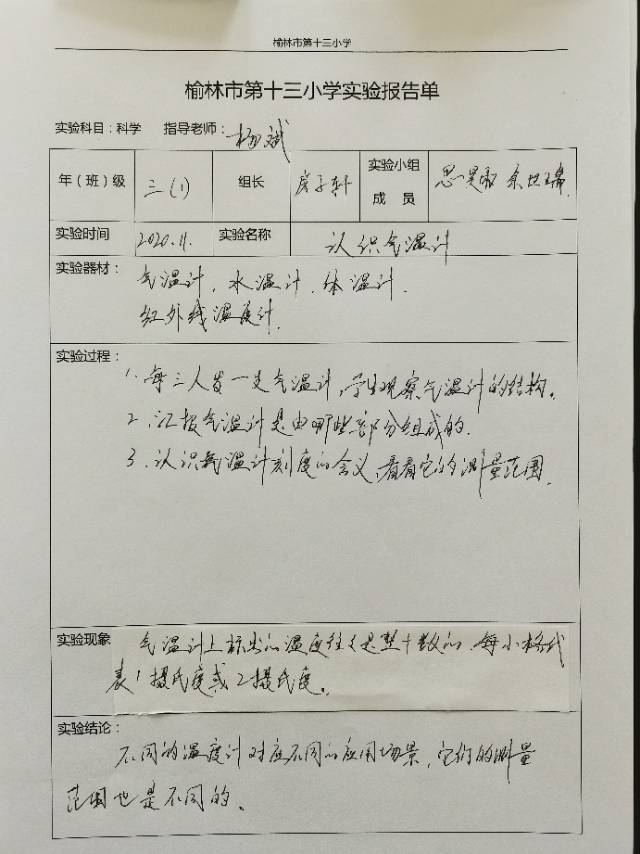 榆林市第十三小学
榆林市第十三小学实验报告单
实验科目：科学 指导老师：杨斌
年（班）级 三（1） 组长 房子轩 实验小组成员
实验时间 2020.11. 实验名称 认识气温计
实验器材： 气温计，水温计，体温计，
红外线温度计
实验过程：
1、每三人发一支气温计，学生观察气温计的结构。
2、汇报气温计是由哪些部分组成的.
3、认识气温计刻度的含义，看看它的测量范围.
实验现象 气温计上标出的温度往往是整十数的，每小格代
表1摄氏度或2摄氏度。
实验结论：
不同的温度计对应不同的应用场景，它们的测量
范围也是不同的。